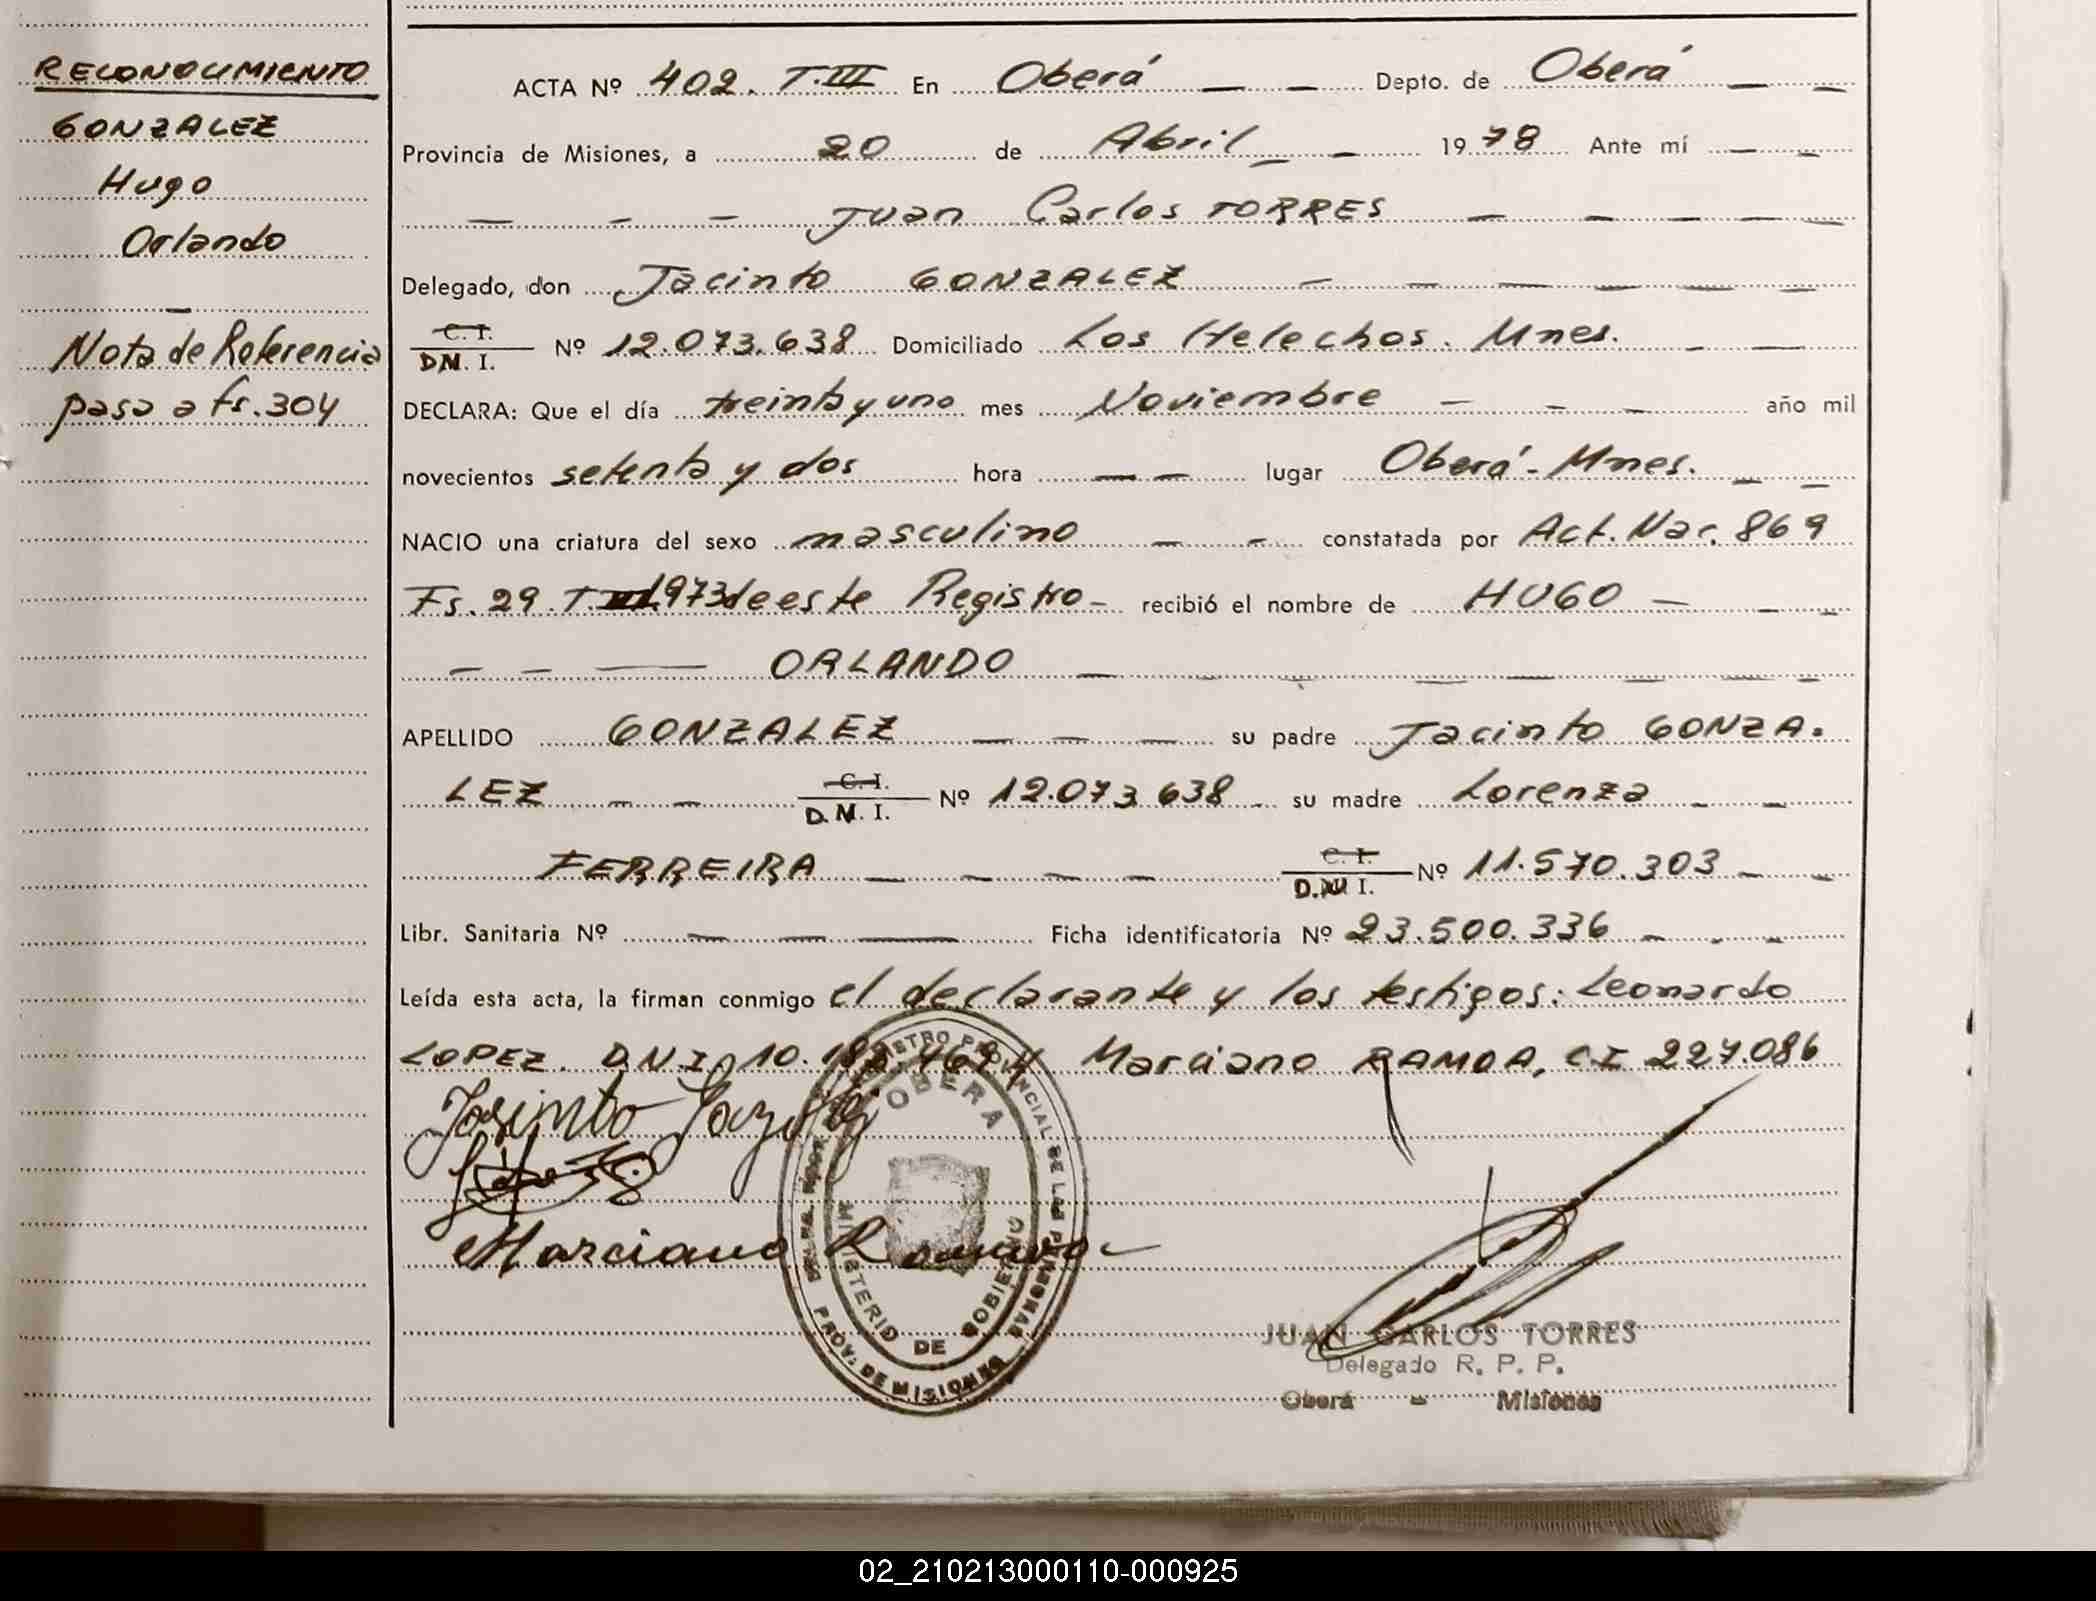 RECONOCIMIENTO
GONZALEZ
Hugo
Orlando
Nota de Referencia
pasa a fs. 304
ACTA Nº 402. T. III En Oberá Depto. de Oberá
Provincia de Misiones, a 20 de Abril 1978 Ante mí
Juan Carlos TORRES
Delegado, don Jacinto GONZALEZ
C. I.
D.M. I. Nº 12.073.638 Domiciliado Los Helechos. Mnes.
DECLARA: Que el día treinta y uno mes Noviembre año mil
novecientos setenta y dos hora lugar Oberá - Mnes.
NACIO una criatura del sexo masculino constatada por Act. Nac. 869
Fs. 29 T. 1973 de este Registro - recibió el nombre de HUGO
ORLANDO
APELLIDO GONZALEZ su padre Jacinto GONZA.
LEZ C. I.
D. M. I. Nº 12.073.638 su madre Lorenza
FERREIRA C. I.
D. M. I. Nº 11.570.303
Libr. Sanitaria Nº Ficha identificatoria Nº 23.500.336
Leída esta acta, la firman conmigo el declarante y los testigos: Leonardo
LOPEZ. D.N.I. 10. y Marciano RAMOA, C.I 227.086
Jasinto
Marciano Ramoa
OBERA
MINISTERIO DE GOBIERNO
PROV. DE MISIONES
JUAN CARLOS TORRES
Delegado R. P. P.
Oberá - Misiones
02_210213000110-000925